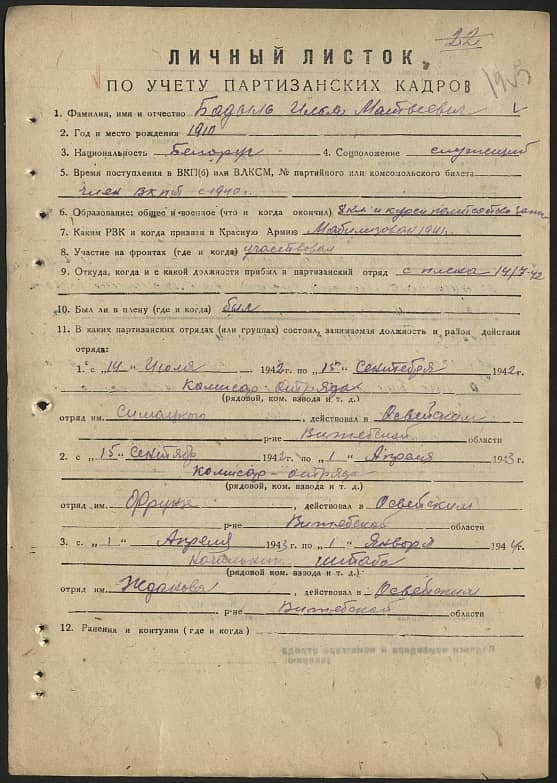 22
ЛИЧНЫЙ ЛИСТОК
ПО УЧЕТУ ПАРТИЗАНСКИХ КАДРОВ
1. Фамилия, имя и отчество Илья Матвеевич
2. Год и место рождения 1910
3. Национальность Белорус 4. Соцположение служащий
5. Время поступления в ВКП(б) или ВЛКСМ, № партийного или комсомольского билета
член ВКПб с 1940 г.
6. Образование: общее и военное (что и когда окончил) 8 кл и курсы
7. Каким РВК и когда призван в Красную Армию Мобилизован 1941 г.
8. Участие на фронтах (где и когда) участвовал
9. Откуда, когда и с какой должности прибыл в партизанский отряд с плена 14/7-42
10. Был ли в плену (где и когда) был
11. В каких партизанских отрядах (или группах) состоял, занимаемая должность и район действия
отряда:
1. с „14" Июля 1942 г. по „15" сентября 1942 г.
комисар отряда
(рядовой, ком. взвода и т. д.)
отряд им. , действовал в Освейском
р-не Витебской области
2. с „15" сентябр 1942 г. по „1" Апреля 1943 г.
комисар-отряда
(рядовой, ком. взвода и т. д.)
отряд им. Фрунзе , действовал в Освейским
р-не Витебской области
3. с „1" Апреля 1943 г. по „1" Январа 1944 г.
штаба
(рядовой ком. взвода и т. д.)
отряд им. Жданова , действовал в Освейским
р-не Витебской области
12. Ранения и контузии (где и когда)